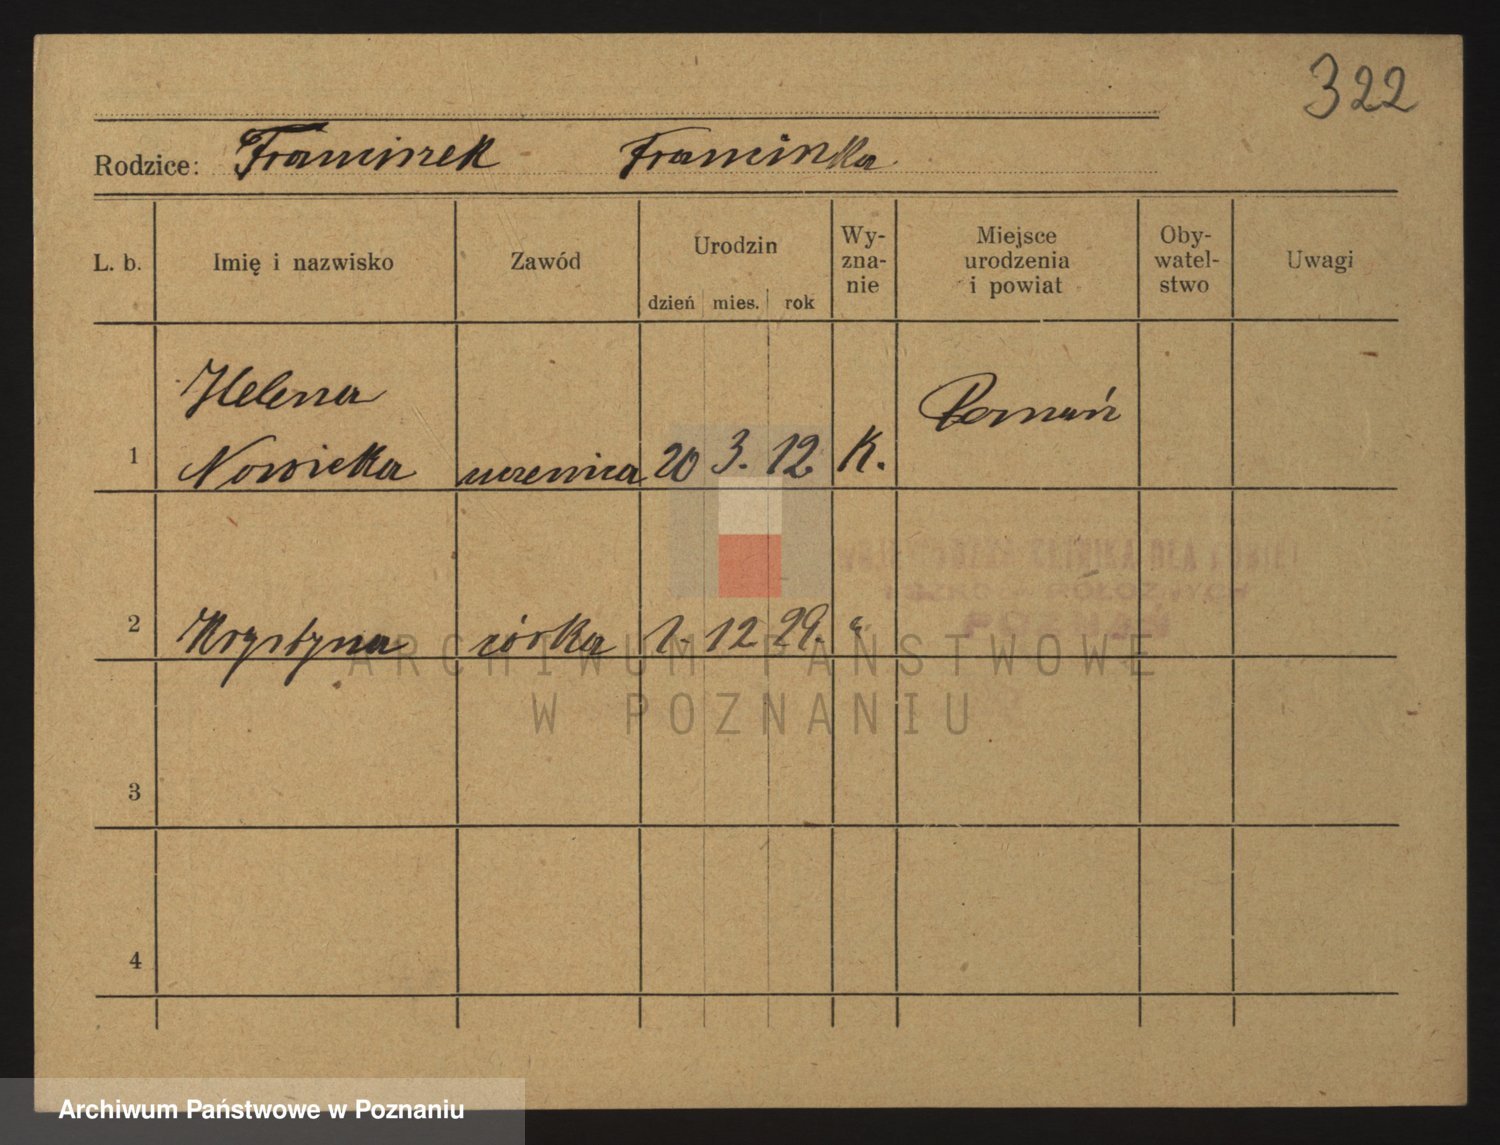 322
Rodzice: Franciszek Franciszka
L. b. Imię i nazwisko Zawód Urodzin dzień mies. rok Wy-zna-nie Miejsce urodzenia i powiat Oby-watel-stwo Uwagi
Helena Poznań
1 Nowicka uczenica 20 3. 12. K.
KLINIKA DLA
2 Krystyna córka 1. 12 29. "
POZNAŃ
ARCHIWUM PAŃSTWOWE
W POZNANIU
3
4
Archiwum Państwowe w Poznaniu